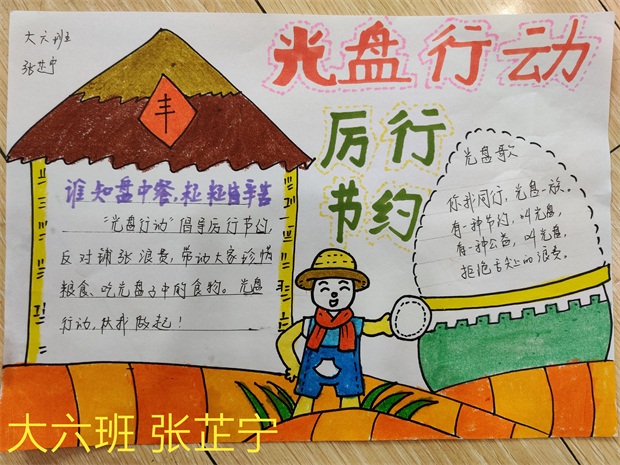 大六班
张芷宁
光盘行动
厉行
节约
丰
谁知盘中餐,粒粒皆辛苦
"光盘行动"倡导厉行节约,
反对铺张浪费,带动大家珍惜
粮食、吃光盘子中的食物。光盘
行动,从我做起!
光盘歌
你我同行,光盘一族。
有一种节约,叫光盘,
有一种公益,叫光盘,
拒绝舌尖上的浪费。
大六班 张芷宁